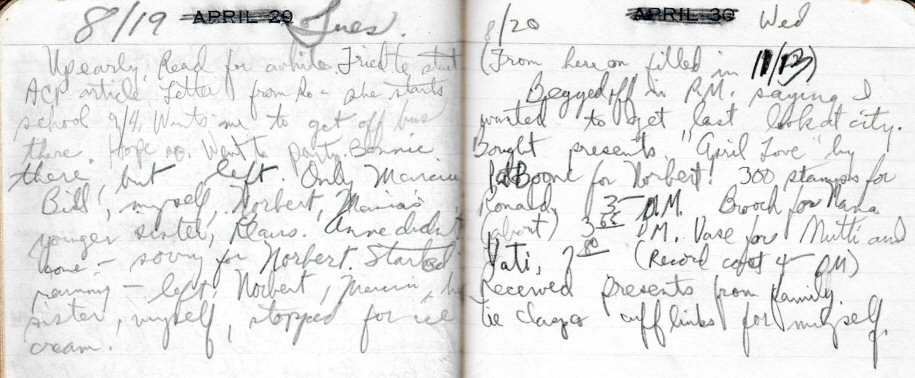 8/19 APRIL 29 Tues.
Up early. Read for awhile. Tried to start
ACP article. Letter from Jo - she starts
school 9/4. Wants me to get off bus
there. Hope so. Went to party. Bonnie
there, but left. Only Marcia
Bill, myself, Norbert, Marcia's
younger sister, Klaus. Anne didn't
come - sorry for Norbert. Started
raining - left. Norbert, Marcia, her
sister, myself, stopped for ice
cream.
8/20 APRIL 30 Wed
(From here on filled in 11/13)
Begged off in P.M. saying I
wanted to get last look at city.
Bought presents. "April Love" by
Pat Boone for Norbert. 300 stamps for
Ronald, 3- D.M. Brooch for Nana
(about) 3 D.M. Vase for Mutti and
Vati, (Record cost 4- DM)
Received presents from family.
Tie clasp cufflinks for myself.